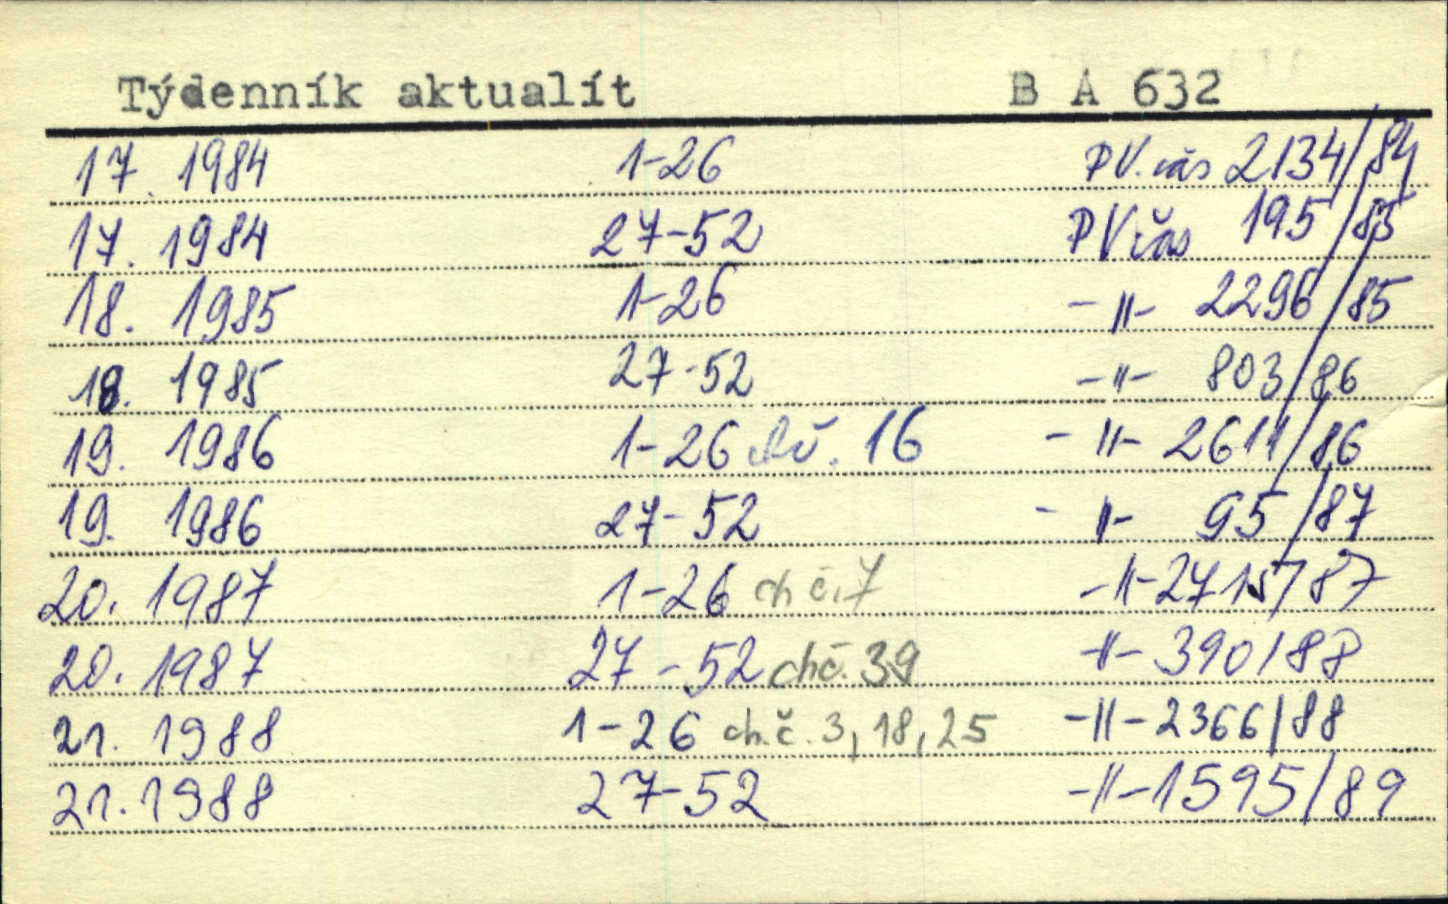 Týdenník aktualít B A 632
17. 1984 1-26 PV.čás 2134/84
17. 1984 27-52 PVčás 195/85
18. 1985 1-26 -"- 2296/85
18. 1985 27-52 -"- 803/86
19. 1986 1-26 chč. 16 -"- 2611/86
19. 1986 27-52 -"- 95/87
20. 1987 1-26 ch č.7 -"- 2715/87
20. 1987 27-52 chč. 39 -"- 390/88
21. 1988 1-26 ch.č. 3, 18, 25 -"- 2366/88
21. 1988 27-52 -"- 1595/89